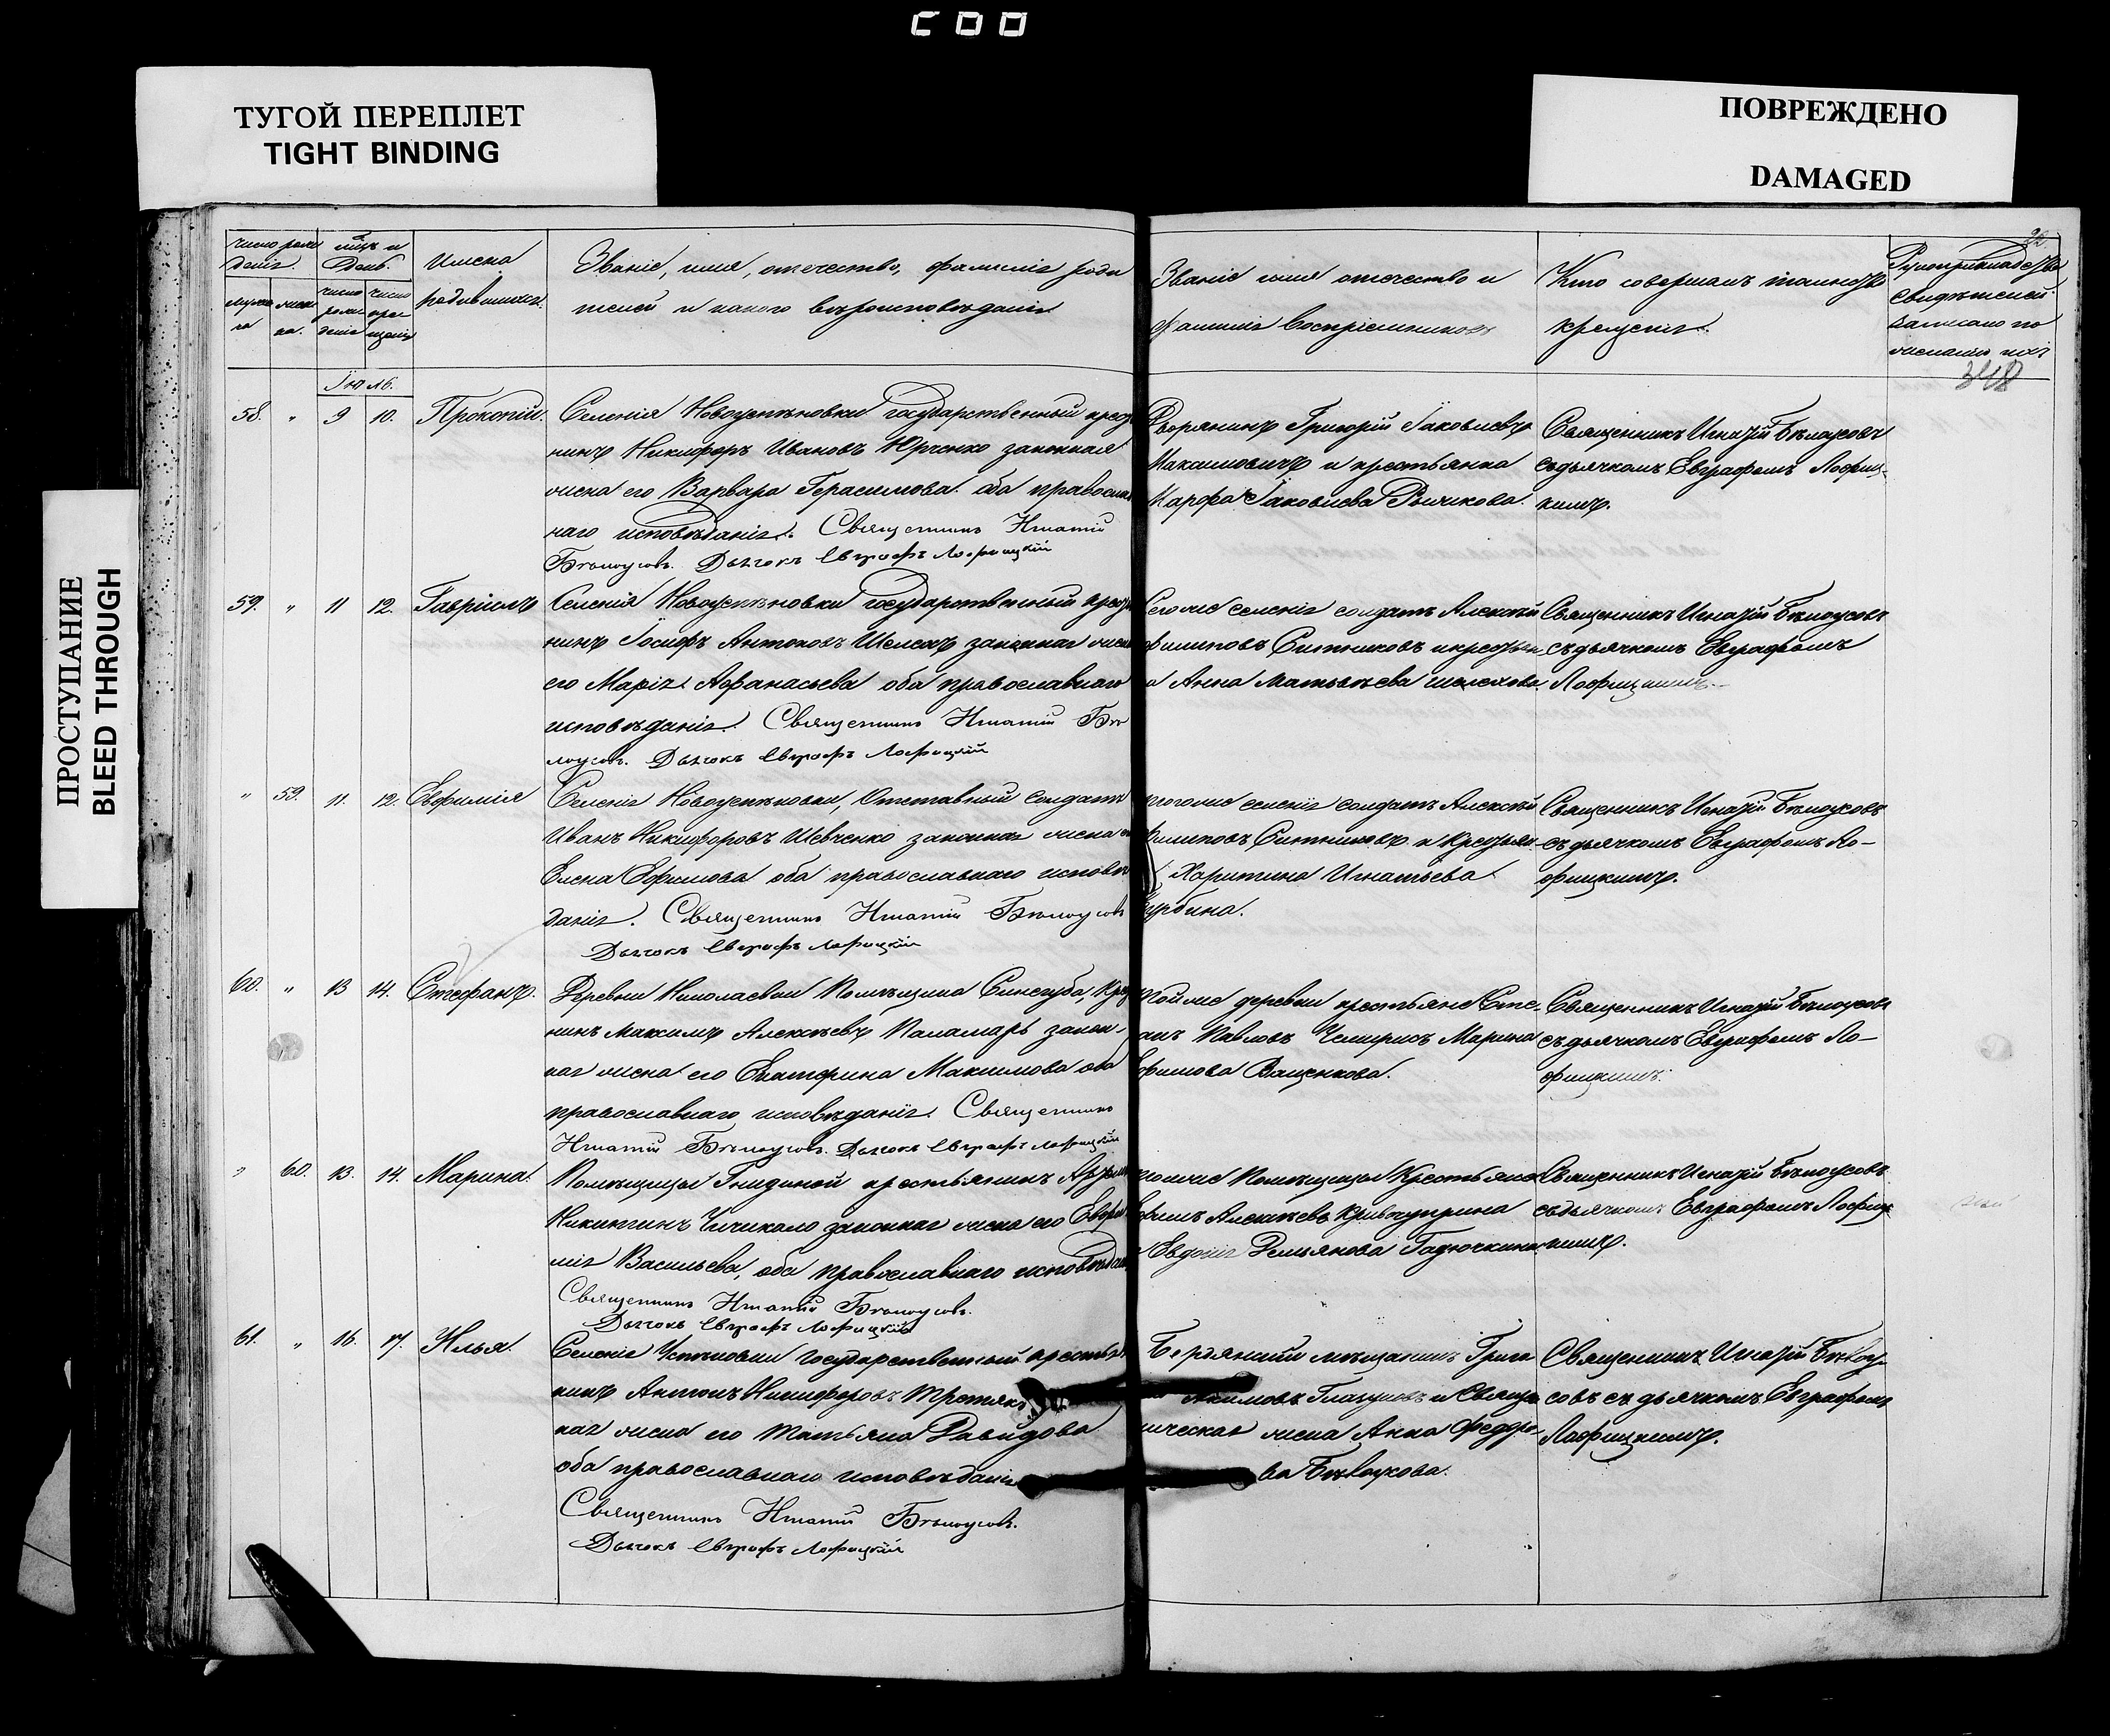 ТУГОЙ ПЕРЕПЛЕТ
TIGHT BINDING
ПОВРЕЖДЕНО
DAMAGED
ПРОСТУПАНИЕ
BLEED THROUGH
Имена
родившихся.
Званіе, имя, отечество, фамилія роди
телей и какого вѣроисповѣданія
Званіе имя отечество и
фамилія воспріемниковъ
Кто совершалъ таинство
крещенія.
Рукоприкладство
свидѣтелей
записано по
желанію ихъ
348
Іюль.
58. " 9 10. Прокопій.
Селенія Новоуспеновки государственный крестья
нинъ Никифоръ Ивановъ Юрченко законная
жена его Варвара Герасимова оба православ
наго исповѣданія. Священникъ Игнатій
Бѣлоусовъ. Дьячокъ Евграфъ Лофицкій
Дворянинъ Григорій Іаковлевъ
Максимовичъ и крестьянка
Марфа Іаковлева Рычкова.
Священникъ Игнатій Бѣлоусовъ
съ дьячкомъ Евграфомъ Лофиц-
кимъ.
59. " 11 12. Гавріилъ
Селенія Новоуспеновки государственный крестья
нинъ Іосифъ Антоновъ Шелехъ законная жена
его Марія Афанасьева оба православнаго
исповѣданія. Священникъ Игнатій Бѣ
лоусовъ. Дьячокъ Евграфъ Лофицкій
Сего же селенія солдатъ Алексѣй
Филиповъ Ситниковъ и крестьян
а Анна Матвѣева Шелехова.
Священникъ Игнатій Бѣлоусовъ
съ дьячкомъ Евграфомъ
Лофицкимъ.
" 59. 11. 12. Евфимія
Селенія Новоуспеновки, Отставный солдатъ
Иванъ Никифоровъ Шевченко законная жена его
Елена Ефимова оба православнаго исповѣ
данія. Священникъ Игнатій Бѣлоусовъ
Дьячокъ Евграфъ Лофицкій
того же селенія солдатъ Алексѣй
Филиповъ Ситниковъ и крестьян
Харитина Игнатьева
урбина.
Священникъ Игнатій Бѣлоусовъ
съ дьячкомъ Евграфомъ Ло-
фицкимъ.
60. " 13 14. Стефанъ.
Деревни Николаевки Помѣщика Синегуба, крестья
нинъ Максимъ Алексѣевъ Паламарь закон-
ная жена его Екатерина Максимова оба
православнаго исповѣданія. Священникъ
Игнатій Бѣлоусовъ. Дьячокъ Евграфъ Лофицкій
Той же деревни крестьяне Сте-
анъ Павловъ Чемирисъ Марина
фимова Ващенкова.
Священникъ Игнатій Бѣлоусовъ
съ дьячкомъ Евграфомъ Ло-
фицкимъ.
" 60. 13. 14. Марина.
Помѣщицы Гнидиной крестьянинъ
Никитинъ Чичикало законная жена его Евфи
мія Васильева, оба православнаго исповѣданія
Священникъ Игнатій Бѣлоусовъ.
Дьячокъ Евграфъ Лофицкій
той же Помѣщицы Крестьяне
фимъ Алексѣевъ Кривохуприна
Евдокія Демьянова Гадючкина
Священникъ Игнатій Бѣлоусовъ
съ дьячкомъ Евграфомъ Лофиц
кимъ.
61. " 16. 17. Илья.
Селенія Успеновки государственный крестья
нинъ Антонъ Никифоровъ Третяк
ная жена его Татьяна Давидова
оба православнаго исповѣданія
Священникъ Игнатій Бѣлоусовъ.
Дьячокъ Евграфъ Лофицкій
Бердянскій мѣщанинъ Григо
Акимовъ Глазуновъ и Свяще
ническая жена Анна Федоро-
ва Бѣлоусова.
Священникъ Игнатій Бѣлоу-
совъ съ дьячкомъ Евграфомъ
Лофицкимъ.